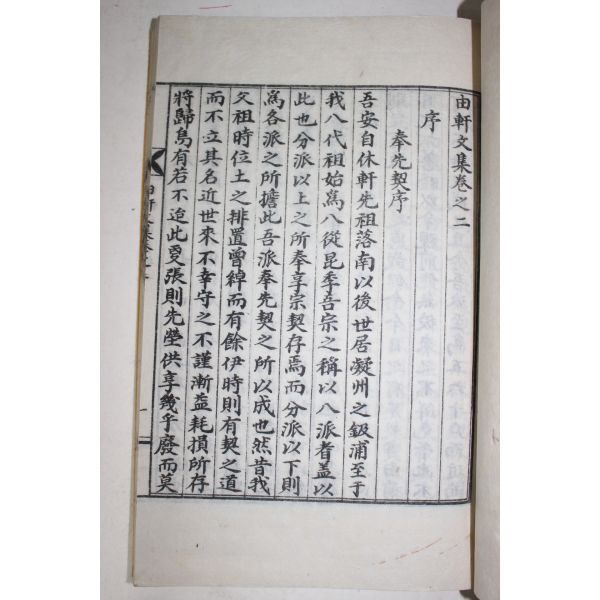 由軒文集卷之二
序
奉先契序
吾安自休軒先祖落南以後世居凝州之鈒浦至于
我八代祖始爲八從昆季吾宗之稱以八派者盖以
此也分派以上之所奉享宗契存焉而分派以下則
爲各派之所擔此吾派奉先契之所以成也然昔我
父祖時位土之排置曾綽而有餘伊時則有契之道
而不立其名近世來不幸守之不謹漸益耗損所存
將歸烏有若不迨此更張則先塋供享幾乎廢而莫
由軒文集卷之二